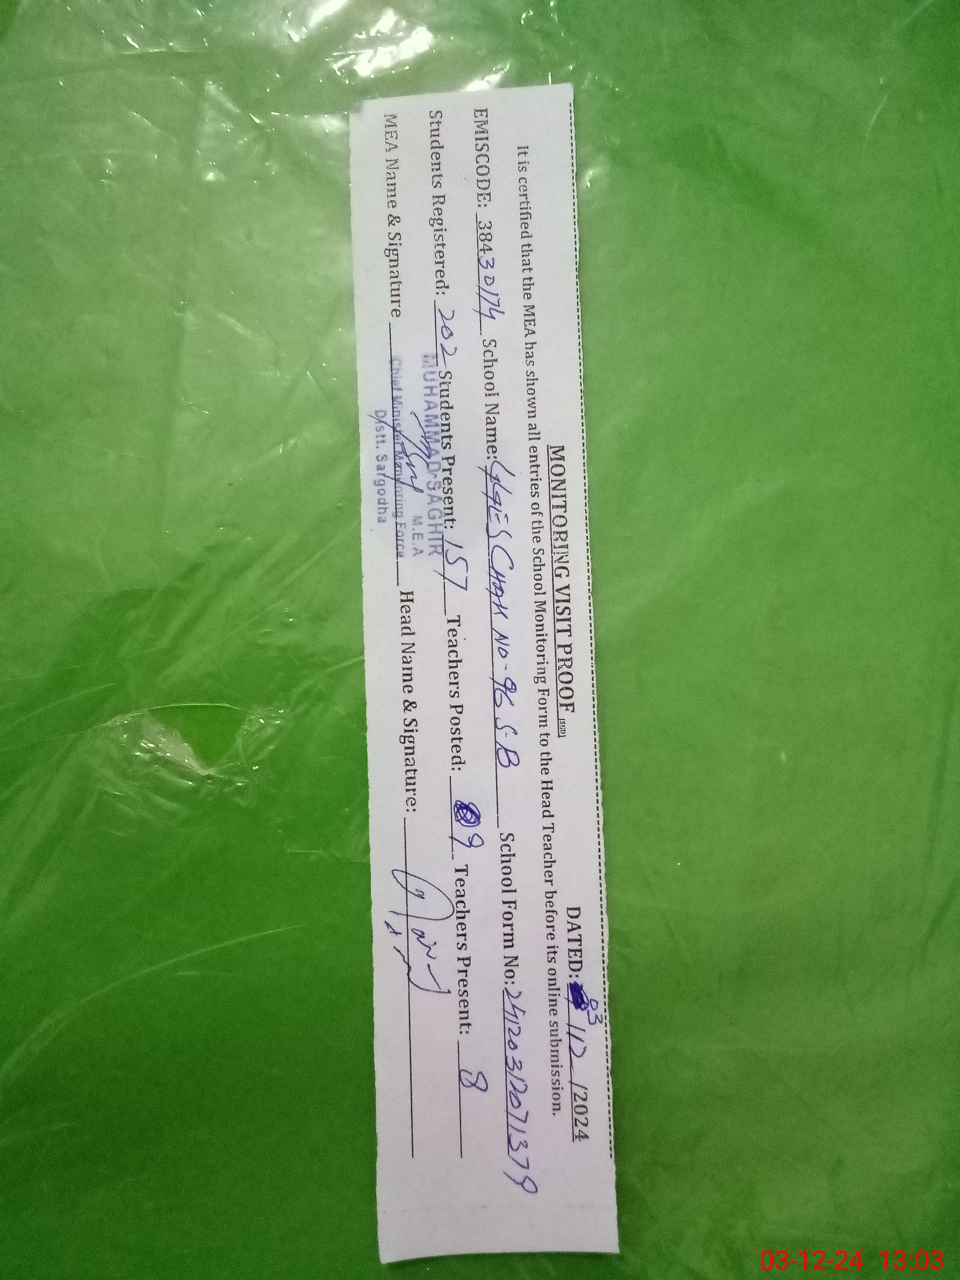 MONITORING VISIT PROOF
DATED: 03/12/2024
It is certified that the MEA has shown all entries of the School Monitoring Form to the Head Teacher before its online submission.
EMISCODE: 38430174 School Name: GGES CHAK NO-96 S-B School Form No: 24120312071379
Students Registered: 202 Students Present: 157 Teachers Posted: 9 Teachers Present: 8
MUHAMMAD SAGHIR
M.E.A
MEA Name & Signature Head Name & Signature:
Chief Minister Monitoring Force
Distt. Sargodha
03-12-24 13:03